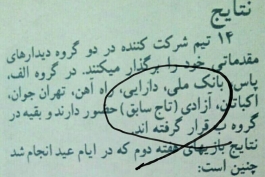 نتایج
۱۴ تیم شرکت کننده در دو گروه دیدارهای
مقدماتی خود را برگذار میکنند. در گروه الف،
پاس، بانک ملی، دارایی، راه آهن، تهران جوان،
اکباتان، ازادی (تاج سابق) حضور دارند و بقیه در
گروه ب قرار گرفته اند.
نتایج بازیهای هفته دوم که در ایام عید انجام شد
چنین است: